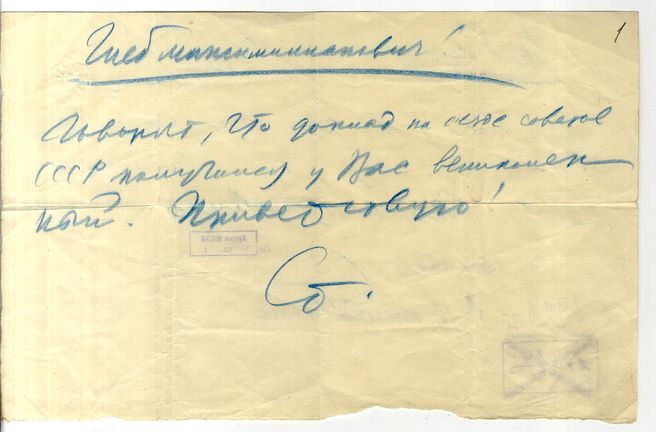 1
Глеб Максимилианович!
Говорят, что доклад на съезде советов
СССР получился у Вас великолеп
ный. Приветствую!
Ст.